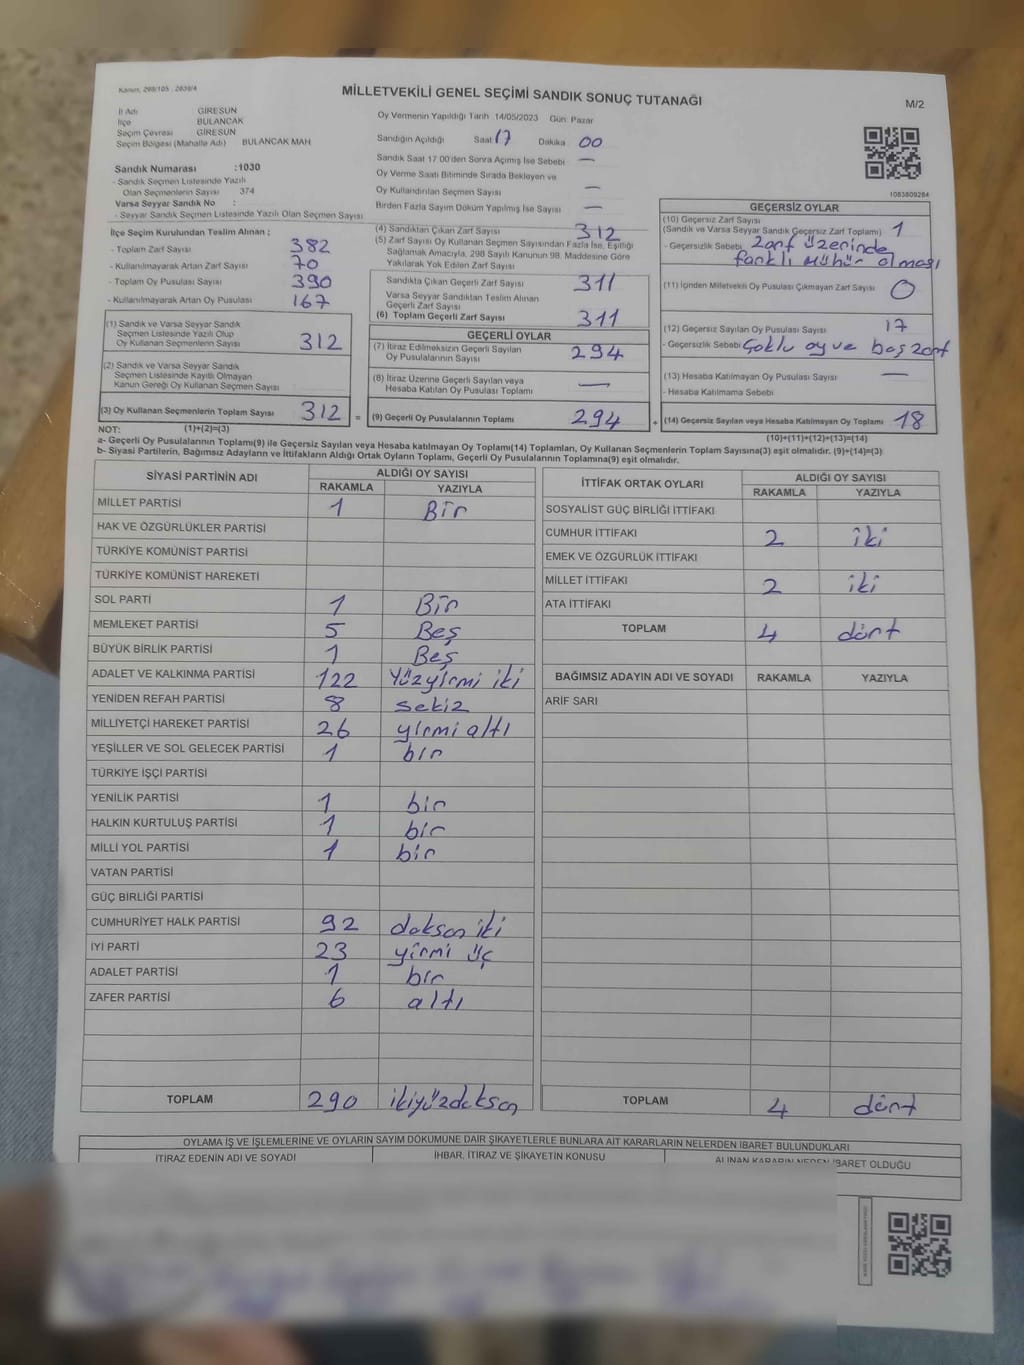 Kanun, 298/105 , 2839/4
MİLLETVEKİLİ GENEL SEÇİMİ SANDIK SONUÇ TUTANAĞI
M/2
İl Adı GİRESUN
İlçe BULANCAK
Seçim Çevresi GİRESUN
Seçim Bölgesi (Mahalle Adı) BULANCAK MAH
Sandık Numarası :1030
- Sandık Seçmen Listesinde Yazılı
Olan Seçmenlerin Sayısı 374
Varsa Seyyar Sandık No :
- Seyyar Sandık Seçmen Listesinde Yazılı Olan Seçmen Sayısı
Oy Vermenin Yapıldığı Tarih 14/05/2023 Gün Pazar
Sandığın Açıldığı Saat 17 Dakika 00
Sandık Saat 17 00'den Sonra Açımış İse Sebebi —
Oy Verme Saati Bitiminde Sırada Bekleyen ve
Oy Kullandırılan Seçmen Sayısı —
Birden Fazla Sayım Döküm Yapılmış İse Sayısı —
1083809284
İlçe Seçim Kurulundan Teslim Alınan ;
- Toplam Zarf Sayısı 382
- Kullanılmayarak Artan Zarf Sayısı 70
- Toplam Oy Pusulası Sayısı 390
- Kullanılmayarak Artan Oy Pusulası 167
(1) Sandık ve Varsa Seyyar Sandık
Seçmen Listesinde Yazılı Olup
Oy Kullanan Seçmenlerin Sayısı 312
(2) Sandık ve Varsa Seyyar Sandık
Seçmen Listesinde Kayıtlı Olmayan
Kanun Gereği Oy Kullanan Seçmen Sayısı
(3) Oy Kullanan Seçmenlerin Toplam Sayısı 312 =
(4) Sandıktan Çıkan Zarf Sayısı 312
(5) Zarf Sayısı Oy Kullanan Seçmen Sayısından Fazla İse, Eşitliği
Sağlamak Amacıyla, 298 Sayılı Kanunun 98. Maddesine Göre
Yakılarak Yok Edilen Zarf Sayısı
Sandıkta Çıkan Geçerli Zarf Sayısı 311
Varsa Seyyar Sandıktan Teslim Alınan
Geçerli Zarf Sayısı
(6) Toplam Geçerli Zarf Sayısı 311
GEÇERLİ OYLAR
(7) İtiraz Edilmeksizin Geçerli Sayılan
Oy Pusulalarının Sayısı 294
(8) İtiraz Üzerine Geçerli Sayılan veya
Hesaba Katılan Oy Pusulası Toplamı —
(9) Geçerli Oy Pusulalarının Toplamı 294 +
GEÇERSİZ OYLAR
(10) Geçersiz Zarf Sayısı
(Sandık ve Varsa Seyyar Sandık Geçersiz Zarf Toplamı) 1
- Geçersizlik Sebebi Zarf üzerinde
farklı mühür olması
(11) İçinden Milletvekili Oy Pusulası Çıkmayan Zarf Sayısı 0
(12) Geçersiz Sayılan Oy Pusulası Sayısı 17
- Geçersizlik Sebebi Çoklu oy ve boş zarf
(13) Hesaba Katılmayan Oy Pusulası Sayısı —
- Hesaba Katılmama Sebebi
(14) Geçersiz Sayılan veya Hesaba Katılmayan Oy Toplamı 18
NOT: (1)+(2)=(3)
(10)+(11)+(12)+(13)=(14)
a- Geçerli Oy Pusulalarının Toplamı(9) ile Geçersiz Sayılan veya Hesaba katılmayan Oy Toplamı(14) Toplamları, Oy Kullanan Seçmenlerin Toplam Sayısına(3) eşit olmalıdır. (9)+(14)=(3)
b- Siyasi Partilerin, Bağımsız Adayların ve İttifakların Aldığı Ortak Oyların Toplamı, Geçerli Oy Pusulalarının Toplamına(9) eşit olmalıdır.
SİYASİ PARTİNİN ADI ALDIĞI OY SAYISI
RAKAMLA YAZIYLA
MİLLET PARTİSİ 1 Bir
HAK VE ÖZGÜRLÜKLER PARTİSİ
TÜRKİYE KOMÜNİST PARTİSİ
TÜRKİYE KOMÜNİST HAREKETİ
SOL PARTİ 1 Bir
MEMLEKET PARTİSİ 5 Beş
BÜYÜK BİRLİK PARTİSİ 1 Beş
ADALET VE KALKINMA PARTİSİ 122 Yüzyirmi iki
YENİDEN REFAH PARTİSİ 8 sekiz
MİLLİYETÇİ HAREKET PARTİSİ 26 yirmi altı
YEŞİLLER VE SOL GELECEK PARTİSİ 1 bir
TÜRKİYE İŞÇİ PARTİSİ
YENİLİK PARTİSİ 1 bir
HALKIN KURTULUŞ PARTİSİ 1 bir
MİLLİ YOL PARTİSİ 1 bir
VATAN PARTİSİ
GÜÇ BİRLİĞİ PARTİSİ
CUMHURİYET HALK PARTİSİ 92 doksan iki
İYİ PARTİ 23 yirmi üç
ADALET PARTİSİ 1 bir
ZAFER PARTİSİ 6 altı
TOPLAM 290 ikiyüzdoksan
İTTİFAK ORTAK OYLARI ALDIĞI OY SAYISI
RAKAMLA YAZIYLA
SOSYALİST GÜÇ BİRLİĞİ İTTİFAKI
CUMHUR İTTİFAKI 2 iki
EMEK VE ÖZGÜRLÜK İTTİFAKI
MİLLET İTTİFAKI 2 iki
ATA İTTİFAKI
TOPLAM 4 dört
BAĞIMSIZ ADAYIN ADI VE SOYADI RAKAMLA YAZIYLA
ARİF SARI
TOPLAM 4 dört
OYLAMA İŞ VE İŞLEMLERİNE VE OYLARIN SAYIM DÖKÜMÜNE DAİR ŞİKAYETLERLE BUNLARA AİT KARARLARIN NELERDEN İBARET BULUNDUKLARI
İTİRAZ EDENİN ADI VE SOYADI İHBAR, İTİRAZ VE ŞİKAYETİN KONUSU ALINAN KARARIN NEDEN İBARET OLDUĞU